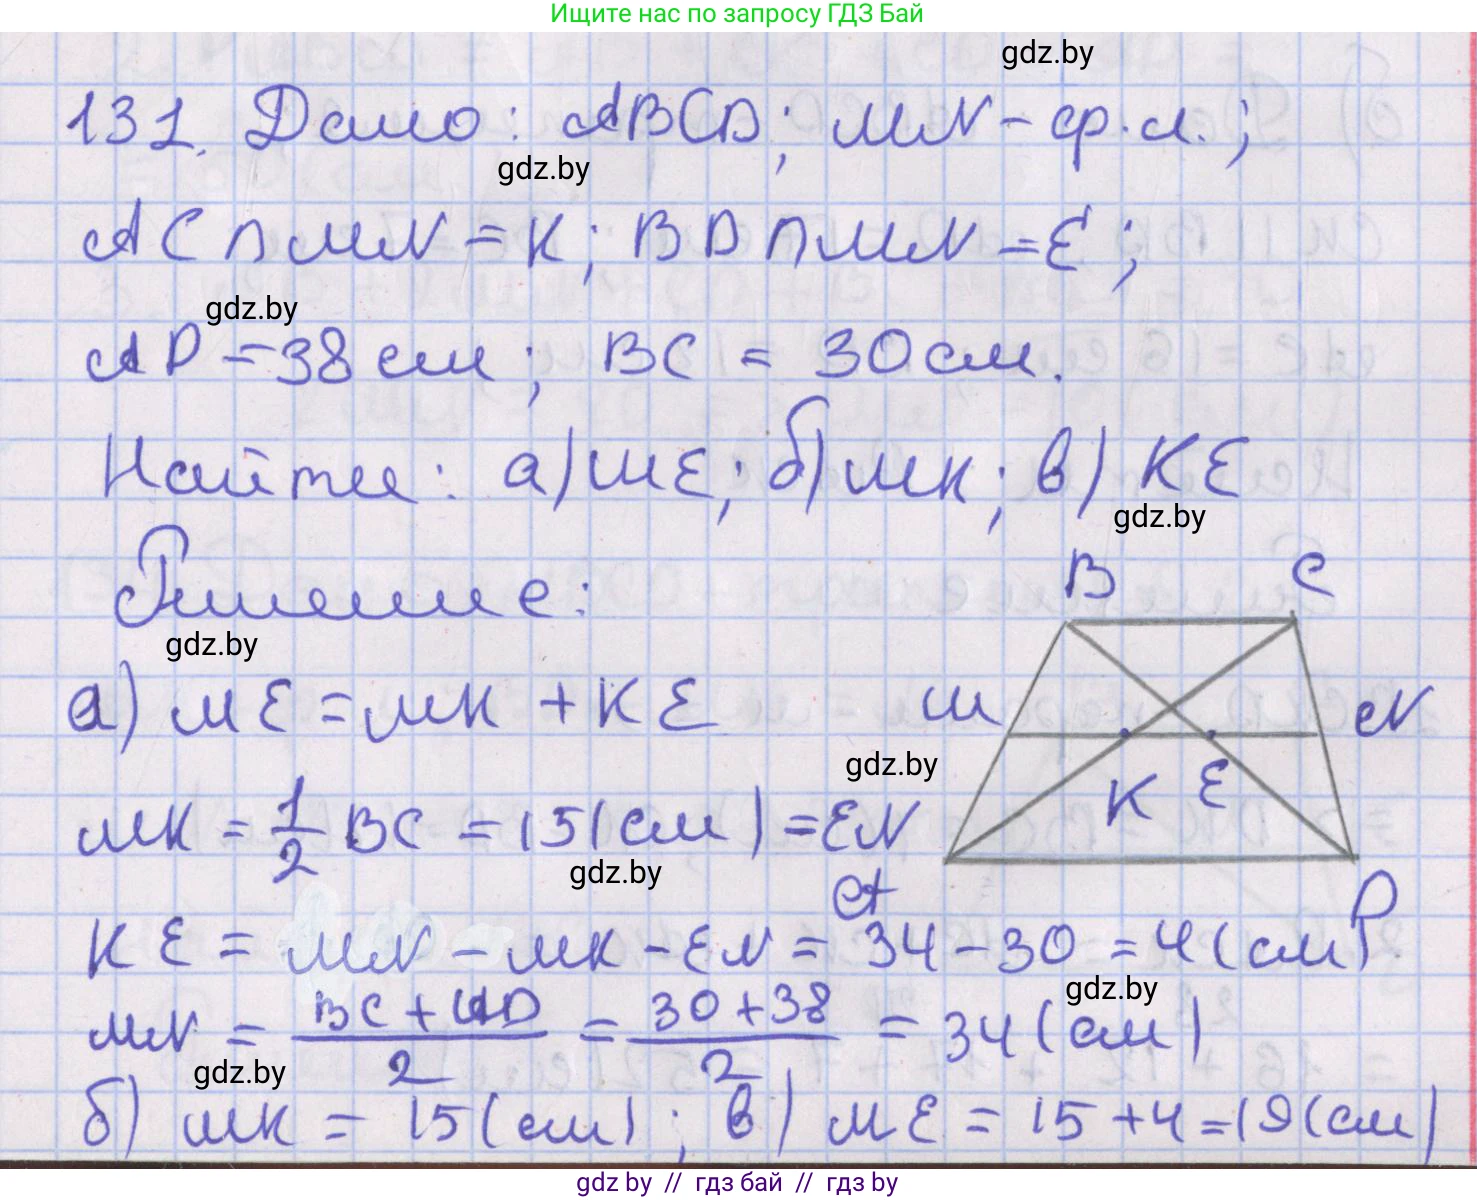 Ищите нас по запросу ГДЗ Бай
gdz.by
131. Дано: ABCD; MN - ср. л.;
gdz.by
AC ∩ MN = K; BD ∩ MN = E;
gdz.by
AD = 38 см; BC = 30 см.
Найти: а) ME; б) MK; в) KE
gdz.by
Решение:
gdz.by
B C
а) ME = MK + KE
M N
gdz.by
K E
MK = 1/2 BC = 15 (см) = EN
gdz.by
A D
KE = MN - MK - EN = 34 - 30 = 4 (см)
gdz.by
MN = (BC + AD)/2 = (30 + 38)/2 = 34 (см)
gdz.by
б) MK = 15 (см); в) ME = 15 + 4 = 19 (см)
gdz.by // гдз бай // гдз by